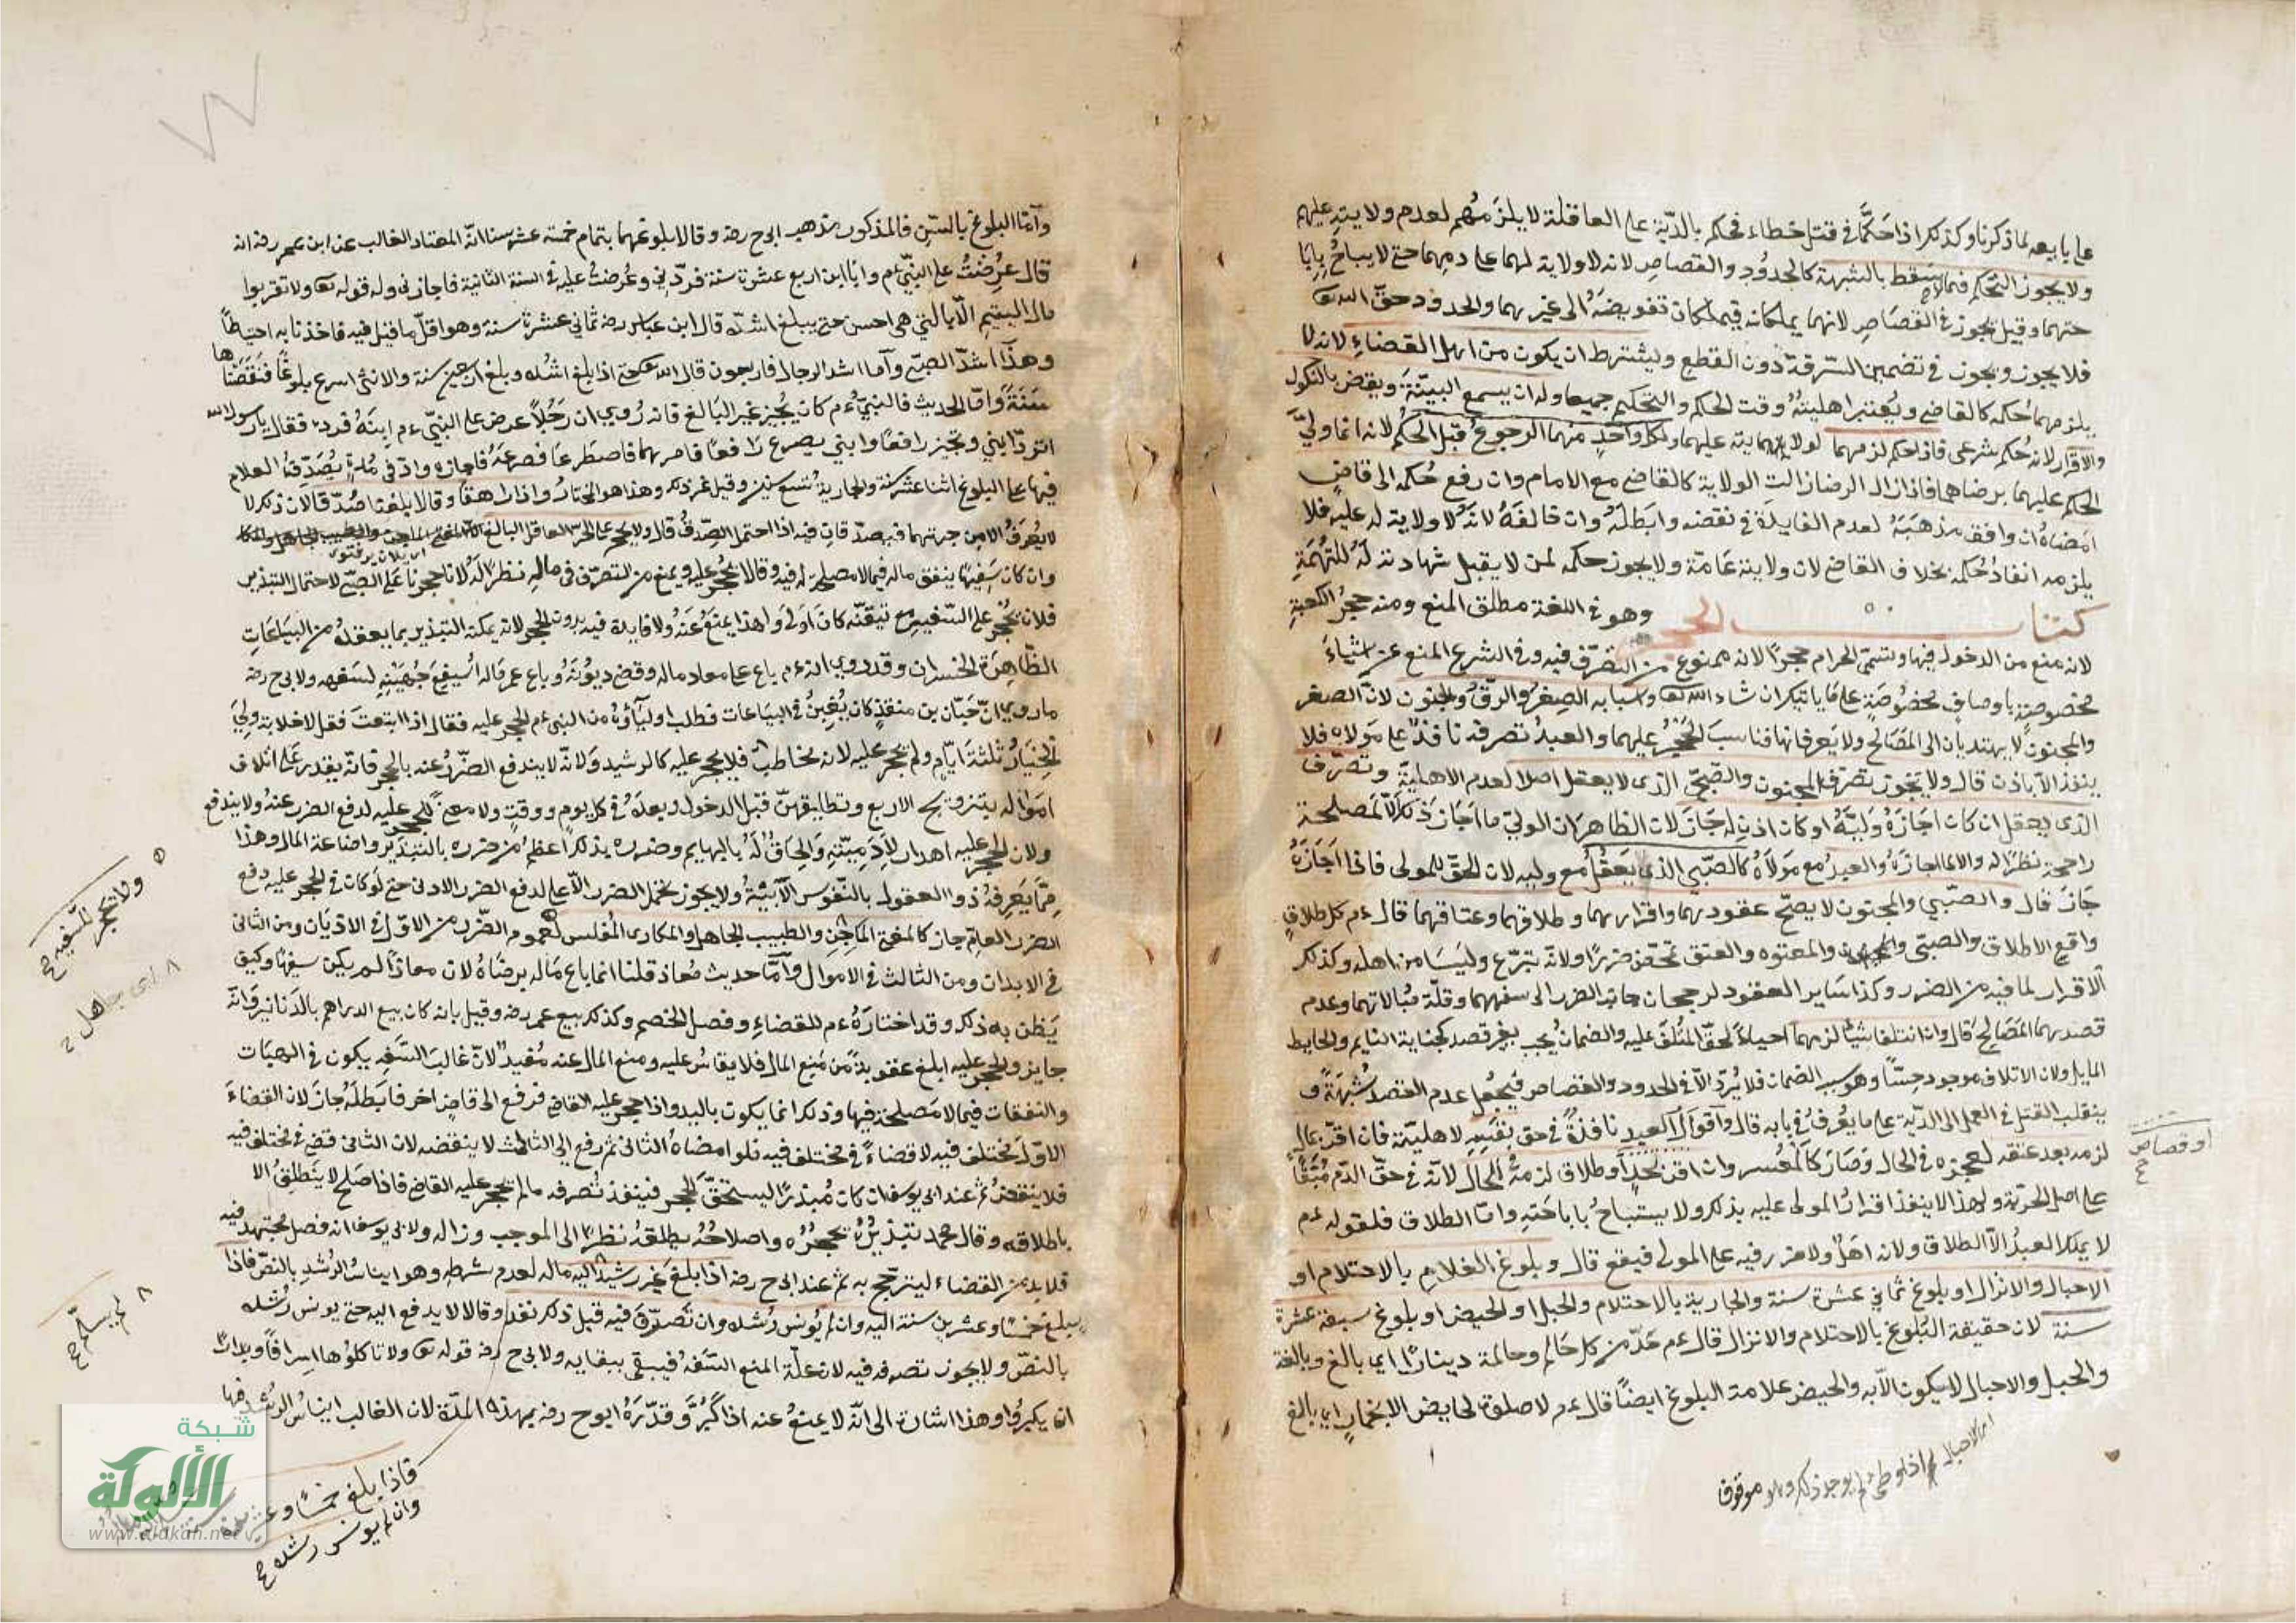 على بايعه لما ذكرنا وكذلك اذا حكما في قتل خطاء فحكم بالدية على العاقلة لا يلزمهم لعدم ولايته عليهم
ولا يجوز التحكيم فيما يسقط بالشبهة كالحدود والقصاص لانه لا ولاية لهما على دمهما حتى لا يباح باباحتهما
وقيل يجوز في القصاص لانهما يملكانه فيملكان تفويضه الى غيرهما والحدود حق الله تع
فلا يجوز ويجوز في تضمين السرقة دون القطع ويشترط ان يكون من اهل القضاء لانه لا
يلزمهما حكمه كالقاضي ويعتبر اهليته وقت الحكم والتحكيم جميعا وله ان يسمع البينة ويقضي بالنكول
والاقرار لانه حكم شرعى فاذا حكم لزمهما لولايته عليهما ولكل واحد منهما الرجوع قبل الحكم لانه انما ولي
الحكم عليهما برضاهما فاذا زال الرضا زالت الولاية كالقاضي مع الامام وان رفع حكمه الى قاض
امضاه ان وافق مذهبه لعدم الفايدة في نقضه وابطله وان خالفه لانه لا ولاية له عليه فلا
يلزمه انفاذ حكمه بخلاف القاضي لان ولايته عامة ولا يجوز حكمه لمن لا يقبل شهادته له للتهمة
كتاب الحجر وهو في اللغة مطلق المنع ومنه حجر الكعبة
لانه منع من الدخول فيها وتسمى الحرام حجرا لانه ممنوع من التصرف فيه وفي الشرع المنع عن اشياء
مخصوصة باوصاف مخصوصة على ما ياتيك ان شاء الله تع واسبابه الصغر والرق والجنون لان الصغر
والمجنون لا يهتديان الى المصالح ولا يعرفانها فناسب الحجر عليهما والعبد تصرفه نافذ على مولاه فلا
ينفذ الا باذنه قال ولا يجوز تصرف المجنون والصبي الذي لا يعقل اصلا لعدم الاهلية وتصرف
الذي يعقل ان كان اجازه وليه او كان اذن له جاز لان الظاهر ان الولي ما اجاز ذلك الا لمصلحة
راجحة نظرا له والا لما اجازه والعبد مع مولاه كالصبي الذي يعقل مع وليه لان الحق للمولى فاذا اجازه
جاز قال والصبي والمجنون لا يصح عقودهما واقرارهما وطلاقهما وعتاقهما قال ءم كل طلاق
واقع الا طلاق والصبي والمعتوه والعتق تمحض ضررا ولانه تبرع وليسا من اهله وكذلك
الاقرار لما فيه من الضرر وكذا ساير العقود لرجحان جانب الضرر الى سفههما وقلة مبالاتهما وعدم
قصدهما المصالح قال وان اتلفا شيئا لزمهما احياء لحق المتلف عليه والضمان يجب بغير قصد كجناية النايم والحايط
المايل ولان الاتلاف موجود حسا وهو سبب الضمان فلا يرد الا في الحدود والقصاص فيجعل عدم القصد شبهة و
ينقلب القتل في العمل الى الدية على ما يعرف في بابه قال واقوال العبد نافذة في حق نفسه لاهليته فان اقر بمال
لزمه بعد عتقه لعجزه في الحال وصار كالمعسر وان اقر بحد او طلاق لزمه في الحال لانه في حق الدم مبقا
على اصل الحرية ولهذا لا ينفذ اقرار المولى عليه بذلك ولا يستباح باباحته واما الطلاق فلقوله ءم
لا يملك العبد الا الطلاق ولانه اهل ولا ضرر فيه على المولى فيقع قال وبلوغ الغلام بالاحتلام او
الاحبال والانزال او بلوغ ثماني عشرة سنة والجارية بالاحتلام والحبل او الحيض او بلوغ سبعة عشرة
سنة لان حقيقة البلوغ بالاحتلام والانزال قال ءم خذ من كل حالم وحالمة دينارا اي بالغ وبالغة
والحبل والاحبال لا يكون الا به والحيض علامة البلوغ ايضا قال ءم لا صلوة لحايض الا بخمار اي بالغ
او قصاص
وآما البلوغ بالسن فالمذكور مذهب ابي ح رضه وقالا بلوغهما بتمام خمسة عشر سنا لانه المعتاد الغالب عن ابن عمر رضه انه
قال عرضت على النبي ءم وانا ابن اربع عشرة سنة فردني وعرضت عليه في السنة الثانية فاجازني وله قوله تع ولا تقربوا
مال اليتيم الا بالتي هي احسن حتى يبلغ اشده قال ابن عباس رضه ثماني عشرة سنة وهو اقل ما قيل فيه فاخذنا به احتياطا
وهذا اشد الصبي وآما اشد الرجال فاربعون قال الله تع حتى اذا بلغ اشده وبلغ اربعين سنة والانثى اسرع بلوغا فنقصناها
سنة وآما الحديث فالنبي ءم كان يجيز غير البالغ فانه روي ان رجلا عرض على النبي ءم ابنه فرده فقال يا رسول الله
اترد ابني وتجيز رافعا وابني يصرع رافعا فامرهما فاصطرعا فصرعه فاجازه وادنى مدة يصدق الغلام
فيها على البلوغ اثنا عشر سنة والجارية تسع سنين وقيل غير ذلك وهذا هو المختار واذا راهقا وقالا بلغنا صدقا لان ذلك لا
لا يعرف الا من جهتهما فيصدقان فيه اذا احتمل الصدق قال ولا يحجر على الحر العاقل البالغ
وان كان سفيها ينفق ماله فيما لا مصلحة له فيه وقالا يحجر عليه ويمنع من التصرف في ماله نظرا له لانا حجرنا على الصبي لاحتمال التبذير
فلان نحجر على السفيه مع تيقنه كان اولى ولهذا يمنع عنه ولا فايدة فيه بدون الحجر لانه يمكنه التبذير بما يعقده من البياعات
الظاهرة الخسران وقد روي انه ءم باع على معاذ ماله وقضى ديونه وباع عمر مال اسيفع جهينة لسفهه ولابي ح رضه
ما روي ان حبان بن منقذ كان يغبن في البياعات فطلب اولياؤه من النبي ءم الحجر عليه فقال اذا ابتعت فقل لا خلابة ولي
الخيار ثلثة ايام ولم يحجر عليه لانه مخاطب فلا يحجر عليه كالرشيد ولانه لا يندفع الضرر عنه بالحجر فانه يقدر على اتلاف
امواله بتزويج الاربع وتطليقهن قبل الدخول وبعده في كل يوم ووقت ولا معنى للحجر عليه لدفع الضرر عنه ولا يندفع
ولان الحجر عليه اهدار لآدميته والحاق له بالبهايم وضرره بذلك اعظم من ضرره بالتبذير واضاعة المال وهذا
مما يعرفه ذوو العقول بالنفوس الآبية ولا يجوز تحمل الضرر الاعلى لدفع الضرر الادنى حتى لو كان في الحجر عليه دفع
الضرر العام جاز كالمفتي الماجن والطبيب الجاهل والمكاري المفلس لعموم الضرر من الاول في الاديان ومن الثاني
في الابدان ومن الثالث في الاموال وآما حديث معاذ قلنا انما باع ماله برضاه لان معاذا لم يكن سفيها وكيف
يظن به ذلك وقد اختاره ءم للقضاء وفصل الخصم وكذلك بيع عمر رضه وقيل بانه كان بيع الدراهم بالدنانير وانه
جايز والحجر عليه ابلغ عقوبة من منع المال فلا يقاس عليه ومنع المال عنه مفيد لان غالب السفه يكون في الهبات
والنفقات فيما لا مصلحة فيها وذلك انما يكون باليد واذا حجر عليه القاضي فرفع الى قاض اخر فابطله جاز لان القضاء
الاول مختلف فيه لا قضاء في مختلف فيه فلو امضاه الثاني ثم رفع الى الثالث لا ينقضه لان الثاني قضى في مختلف فيه
فلا ينقض ثم عند ابي يوسف ان كان مبذرا ليستحق الحجر فينفذ تصرفه ما لم يحجر عليه القاضي فاذا صلح لا ينطلق الا
باطلاقه وقال محمد تبذيره يحجره واصلاحه يطلقه نظرا الى الموجب وزواله ولابي يوسف انه فصل مجتهد فيه
فلا بد من القضاء ليترجح به ثم عند ابي ح رضه اذا بلغ غير رشيد اليه ماله لعدم شرطه وهو ايناس الرشد بالنص فاذا
بلغ خمسا وعشرين سنة اليه وان لم يونس رشده وان تصرف فيه قبل ذلك نفذ وقالا لا يدفع اليه حتى يونس رشده
بالنص ولا يجوز تصرفه فيه لان علة المنع السفه فيبقى ببقايه ولابي ح رضه قوله تع ولا تاكلوها اسرافا وبدارا
ان يكبروا وهذا اشارة الى انه لا يمنع عنه اذا كبر وقدره ابو ح رضه بهذه المدة لان الغالب ايناس الرشد فيها
ولا نحجر للسفيه
اى جاهل
لم يسلم
فاذا بلغ خمسا وعشرين سنة
وان لم يونس رشده
شبكة
الألوكة
www.alukah.net